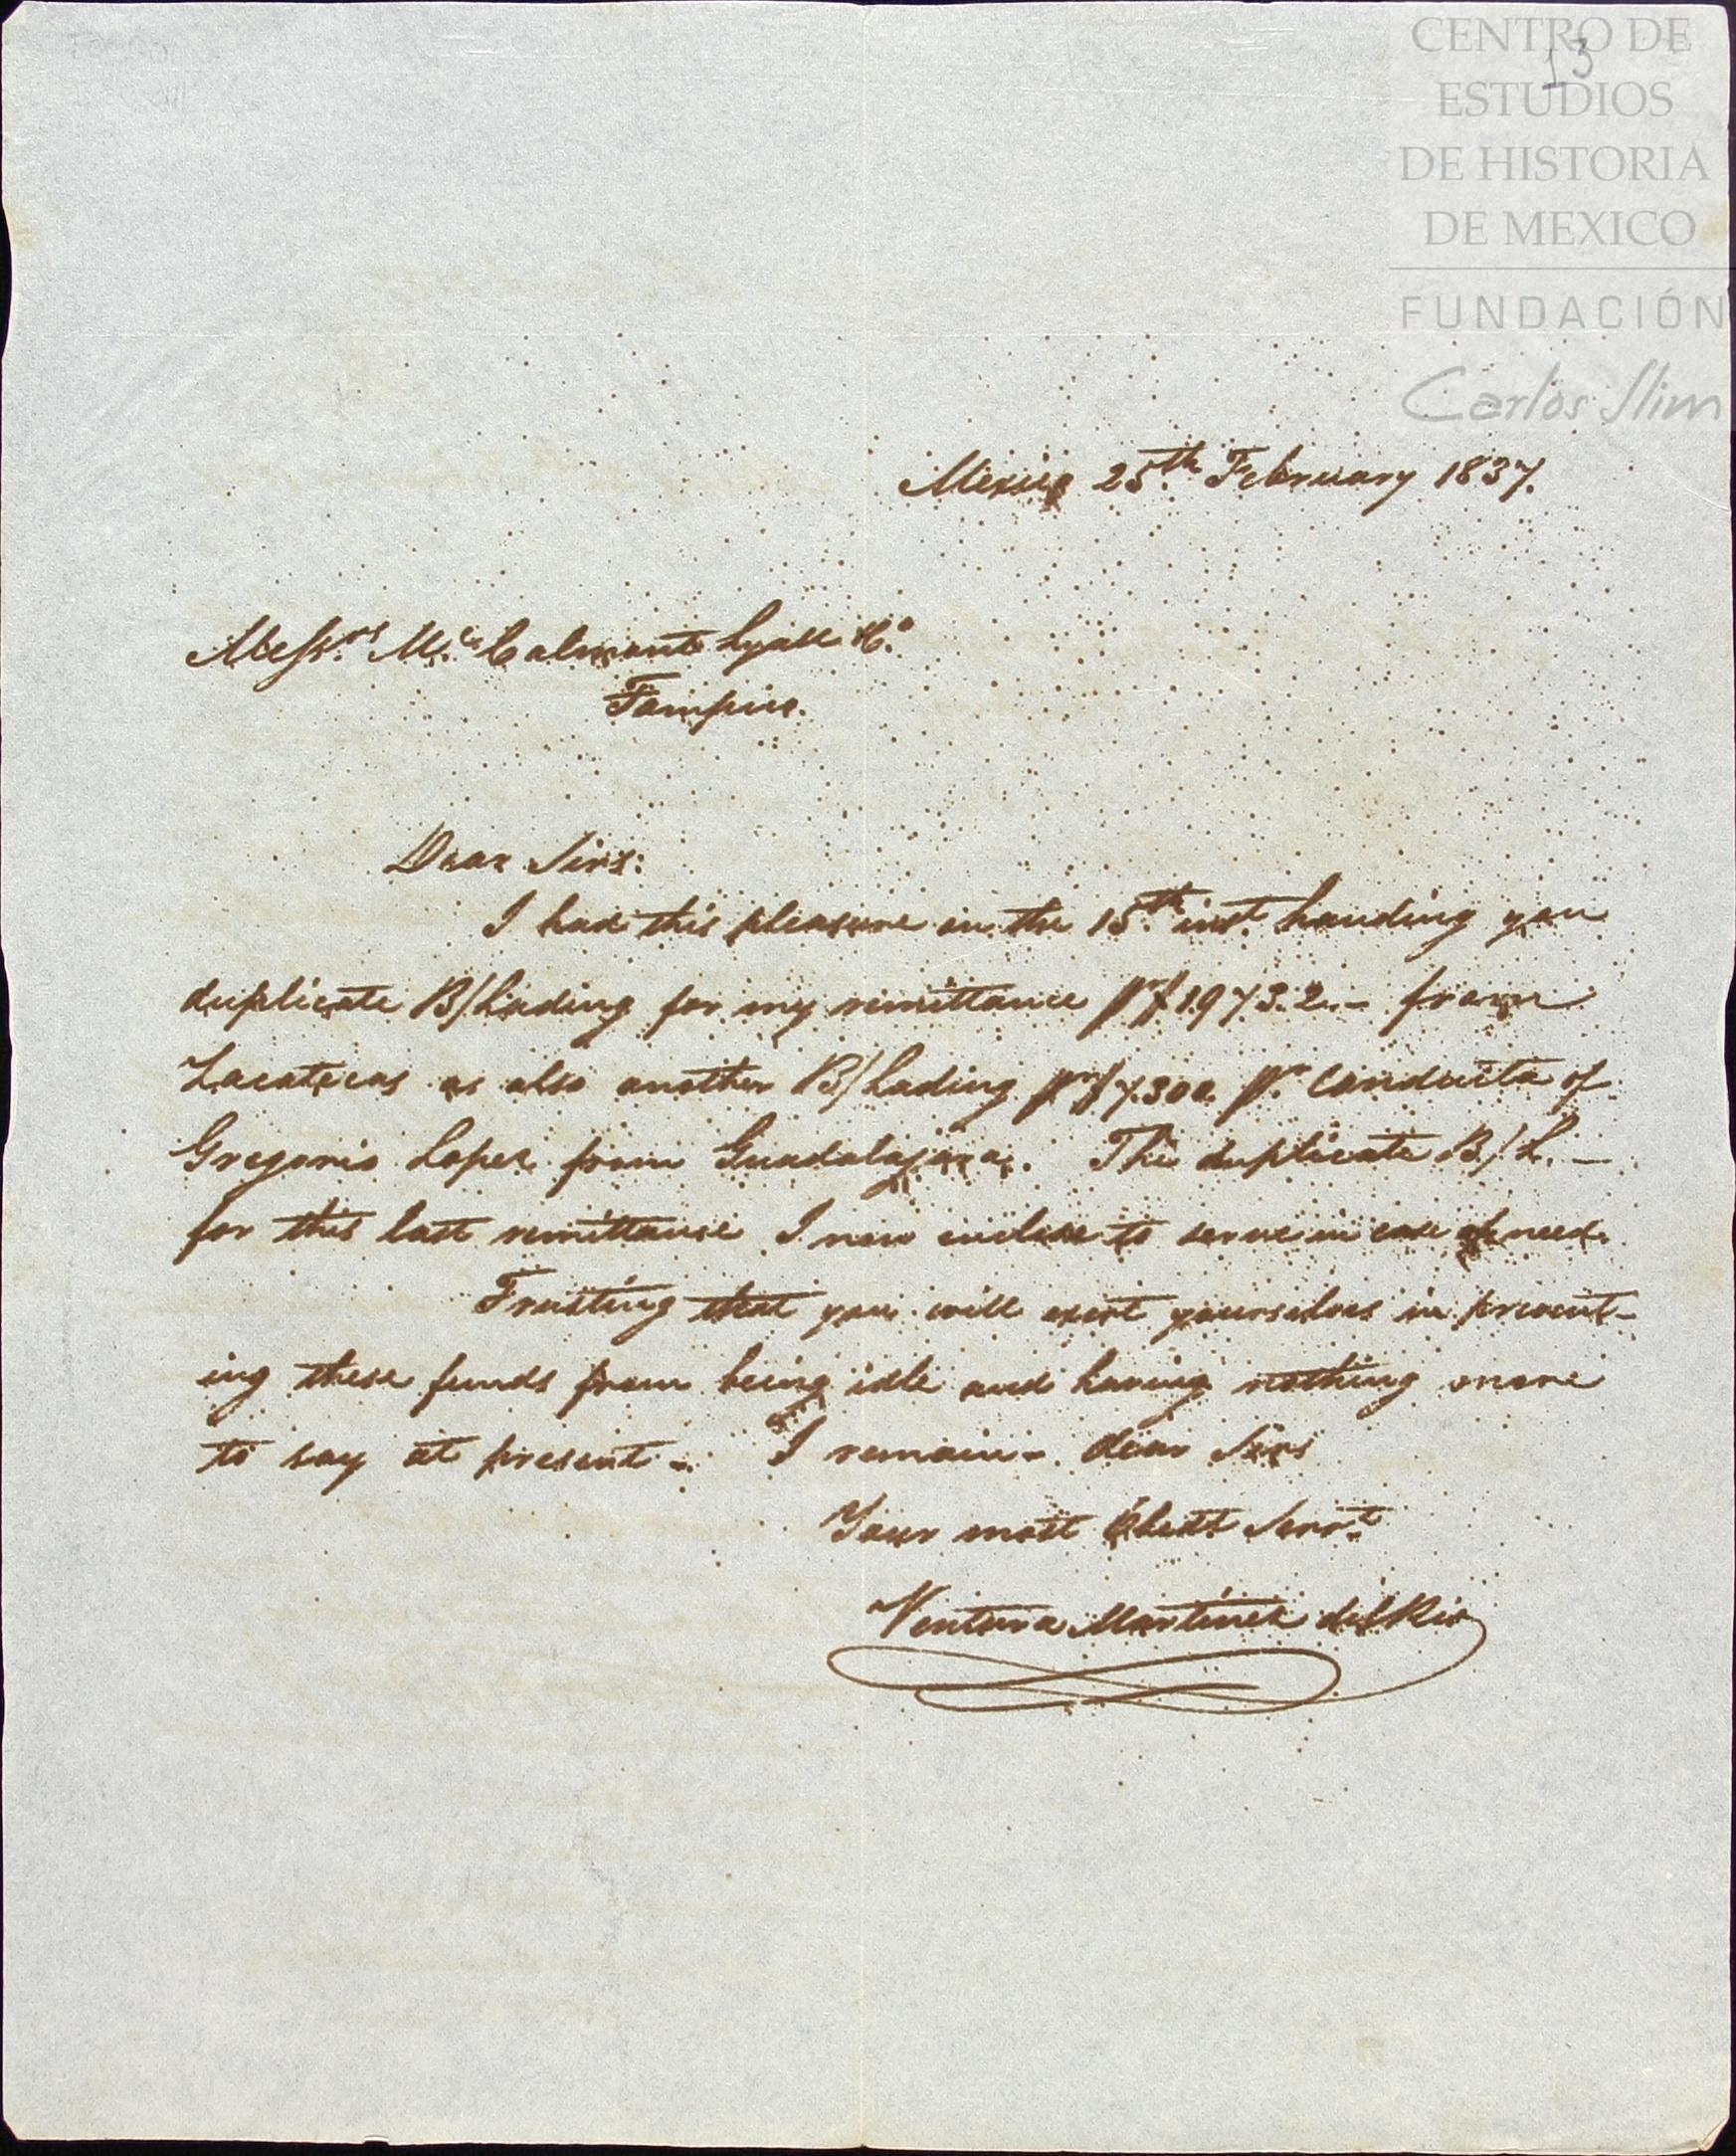 CENTRO DE
ESTUDIOS
DE HISTORIA
DE MEXICO
FUNDACIÓN
Carlos Slim
13
Mexico 25th February 1837.
Messrs McCalmont Lyall &Co
Tampico.
Dear Sirs:
I had this pleasure on the 15th inst. handing you
duplicate B/Lading for my remittance pr $1973.2.- from
Zacatecas as also another B/Lading pr $7.300. pr conducta of
Gregorio Lopez from Guadalajara. The duplicate B/L. —
for this last remittance I now enclose to serve in case of need.
Trusting that you will exert yourselves in prevent-
ing these funds from being idle and having nothing more
to say at present - I remain - dear Sirs
Your most Obedt Servt
Ventura Martinez del Rio